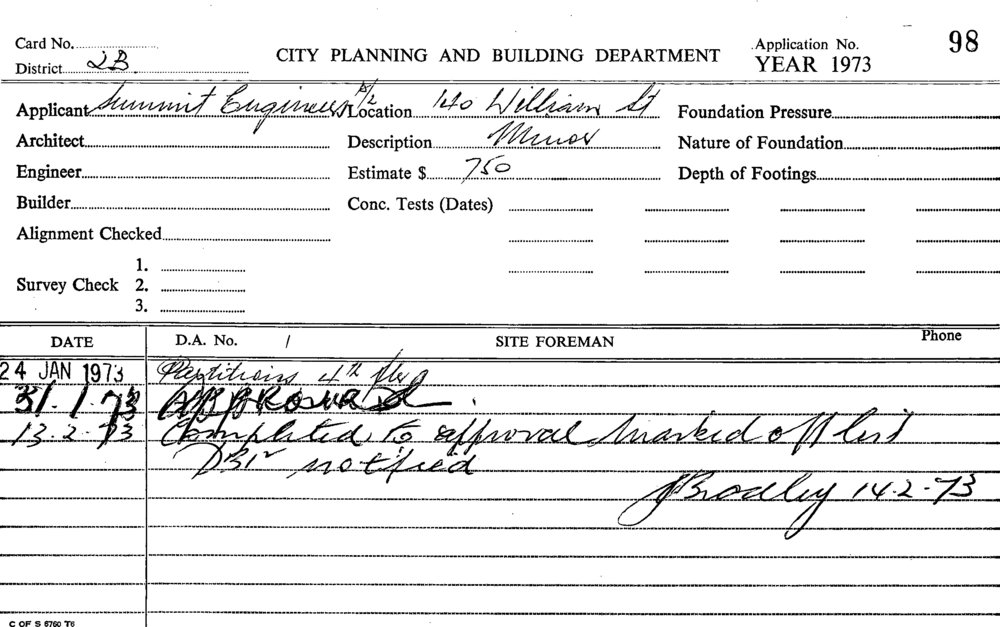 Card No. CITY PLANNING AND BUILDING DEPARTMENT Application No. 98
District 2B YEAR 1973
Applicant Summit Engineers Location 140 William St Foundation Pressure
Architect Description Minor Nature of Foundation
Engineer Estimate $ 750 Depth of Footings
Builder Conc. Tests (Dates)
Alignment Checked
Survey Check 1.
2.
3.
DATE D.A. No. / SITE FOREMAN Phone
24 JAN 1973 Partitions 4th
31.1.73
13.2.73 Completed to approval marked off list
notified
JBradley 14.2.73
C OF S 6760 T6